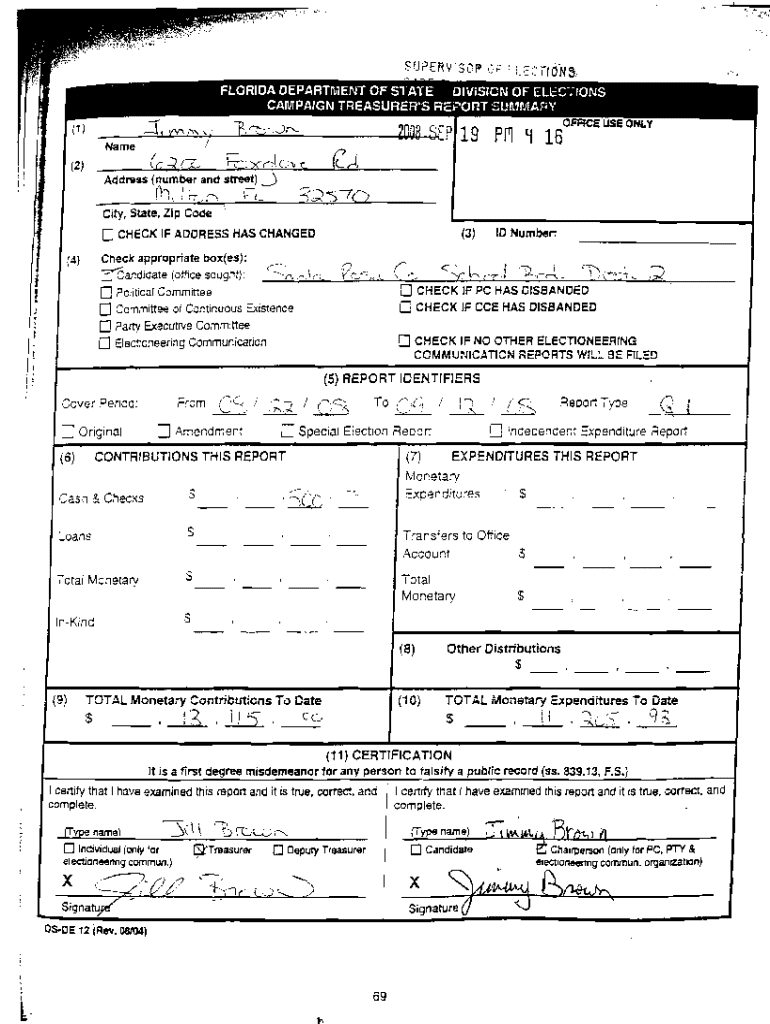 SUPERVISOR OF ELECTIONS
FLORIDA DEPARTMENT OF STATE DIVISION OF ELECTIONS
CAMPAIGN TREASURER'S REPORT SUMMARY
(1) Jimmy Brown
Name
OFFICE USE ONLY
2008 SEP 19 PM 4 16
(2) Rd
Address (number and street)
Milton FL 32570
City, State, Zip Code
CHECK IF ADDRESS HAS CHANGED
(3) ID Number:
(4) Check appropriate box(es):
Candidate (office sought): Santa Rosa Co School Brd. Dist. 2
Political Committee
CHECK IF PC HAS DISBANDED
Committee of Continuous Existence
CHECK IF CCE HAS DISBANDED
Party Executive Committee
Electioneering Communication
CHECK IF NO OTHER ELECTIONEERING
COMMUNICATION REPORTS WILL BE FILED
(5) REPORT IDENTIFIERS
Cover Period: From / 22 / 08 To 09 / 12 / Report Type
Original Amendment Special Election Report Independent Expenditure Report
(6) CONTRIBUTIONS THIS REPORT
Cash & Checks $ , , 500 .
Loans $ , , .
Total Monetary $ , , .
In-Kind $ , , .
(7) EXPENDITURES THIS REPORT
Monetary
Expenditures $ , , .
Transfers to Office
Account $ , , .
Total
Monetary $ , , .
(8) Other Distributions
$ , , .
(9) TOTAL Monetary Contributions To Date
$ , 13 , 115 . 00
(10) TOTAL Monetary Expenditures To Date
$ , 11 , . 93
(11) CERTIFICATION
It is a first degree misdemeanor for any person to falsify a public record (ss. 839.13, F.S.)
I certify that I have examined this report and it is true, correct, and
complete.
(Type name) Jill Brown
Individual (only for Treasurer Deputy Treasurer
electioneering commun.)
X Jill Brown
Signature
I certify that I have examined this report and it is true, correct, and
complete.
(Type name) Jimmy Brown
Candidate Chairperson (only for PC, PTY &
electioneering commun. organization)
X Jimmy Brown
Signature
DS-DE 12 (Rev. 08/04)
69